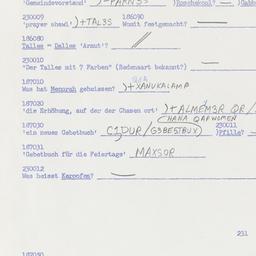 'Gemeindevorstand' )+PARN3S )Roschekohl? —
230009 186090
'prayer shawl' )+TAL3S Womit festgemacht? —
186080
Talles = Dalles 'Armut'? //
230010
"Der Talles mit 7 Farben" (Redensart bekannt?) —
187010
Was hat Menorah geheissen? )+XANUKALAMP
187020
'die Erhöhung, auf der der Chasen ort' )+ALMEM3R OR/
187030 230011
'ein neues Gebetbuch' /G3BESTBUX) )Pfille? —
187031
'Gebetbuch für die Feiertage' MAXSOR
230012
Was heisst Karpofen? —
231
187050